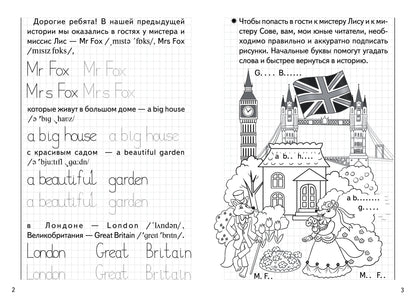 Дорогие ребята! В нашей предыдущей
истории мы оказались в гостях у мистера и
миссис Лис — Mr Fox /ˌmɪstə ˈfɒks/, Mrs Fox
/mɪsɪz fɒks/,
Mr Fox Mr Fox
Mrs Fox Mrs Fox
которые живут в большом доме — a big house
/ə ˈbɪɡ ˌhaʊz/
a big house a big house
с красивым садом — a beautiful garden
/ə ˈbjuːtɪfl ˌɡɑːdn/
a beautiful garden
a beautiful garden
в Лондоне — London /ˈlʌndən/,
Великобритания — Great Britain /ˈɡreɪt ˈbrɪtn/.
London Great Britain
London Great Britain
2
Чтобы попасть в гости к мистеру Лису и к ми-
стеру Сове, вам, мои юные читатели, необ-
ходимо правильно и аккуратно подписать
рисунки. Начальные буквы помогут угадать
слова и быстрее вернуться в историю.
G. . . . B. . . . . .
a b. . h. . . .
a b. . . . . . . .
g. . . . .
M. F. .
M. . F. .
3